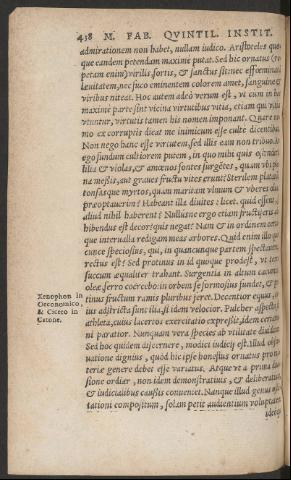 438 M. FAB. QVINTIL. INSTIT.
admirationem non habet, nullam iudico. Aristoteles quo
que eandem petendam maximè putat. Sed hic ornatus (re
petam enim) virilis, fortis, & sanctus sit: nec effœminatã
leuitatem, nec fuco eminentem colorem amet, sanguine &
viribus niteat. Hoc autem adeò verum est, vt cùm in hac
maximè parte sint vicina virtutibus vitia, etiam qui vitiis
vtuntur, virtutis tamen his nomen imponant. Quare ne
mo ex corruptis dicat me inimicum esse cultè dicentibus.
Non nego hanc esse virtutem, sed illis eam non tribuo. An
ego fundum cultiorem putem, in quo mihi quis ostenderit
lilia & violas, & amœnos fontes surgẽtes, quàm vbi ple
na messis, aut graues fructu vites erunt? Sterilem platanũ
tonsasque myrtos, quàm maritam vlmum & vberes oleas
præoptauerim? Habeant illa diuites: licet. quid essent, si
aliud nihil haberent? Nullusne ergo etiam fructiferis ad
hibendus est decor? quis negat? Nam & in ordinem certa
que interualla redigam meas arbores. Quid enim illo quin
cunce speciosius, qui, in quamcunque partem spectaueris,
rectus est? Sed protinus in id quoque prodest, vt terræ
succum æqualiter trahant. Surgentia in altum cacumina
oleæ ferro coercebo: in orbem se formosius fundet, & pro
Xenophon in
Oeconomico,
& Cicero in
Catone.
tinus fructum ramis pluribus feret. Decentior equus, cu
ius astricta sunt ilia, sed idem velocior. Pulcher aspectu sit
athleta, cuius lacertos exercitatio expressit, idem certami
ni paratior. Nunquam vera species ab vtilitate diuiditur.
Sed hoc quidem discernere, modici iudicij est. Illud obser
uatione dignius, quòd hic ipse honestus ornatus pro ma
teriæ genere debet esse variatus. Atque vt à prima diui
sione ordiar, non idem demonstratiuis, & deliberatiuis,
& iudicialibus caussis conueniet. Nanque illud genus osten
tationi compositum, solam petit audientium voluptatem:
ideoque